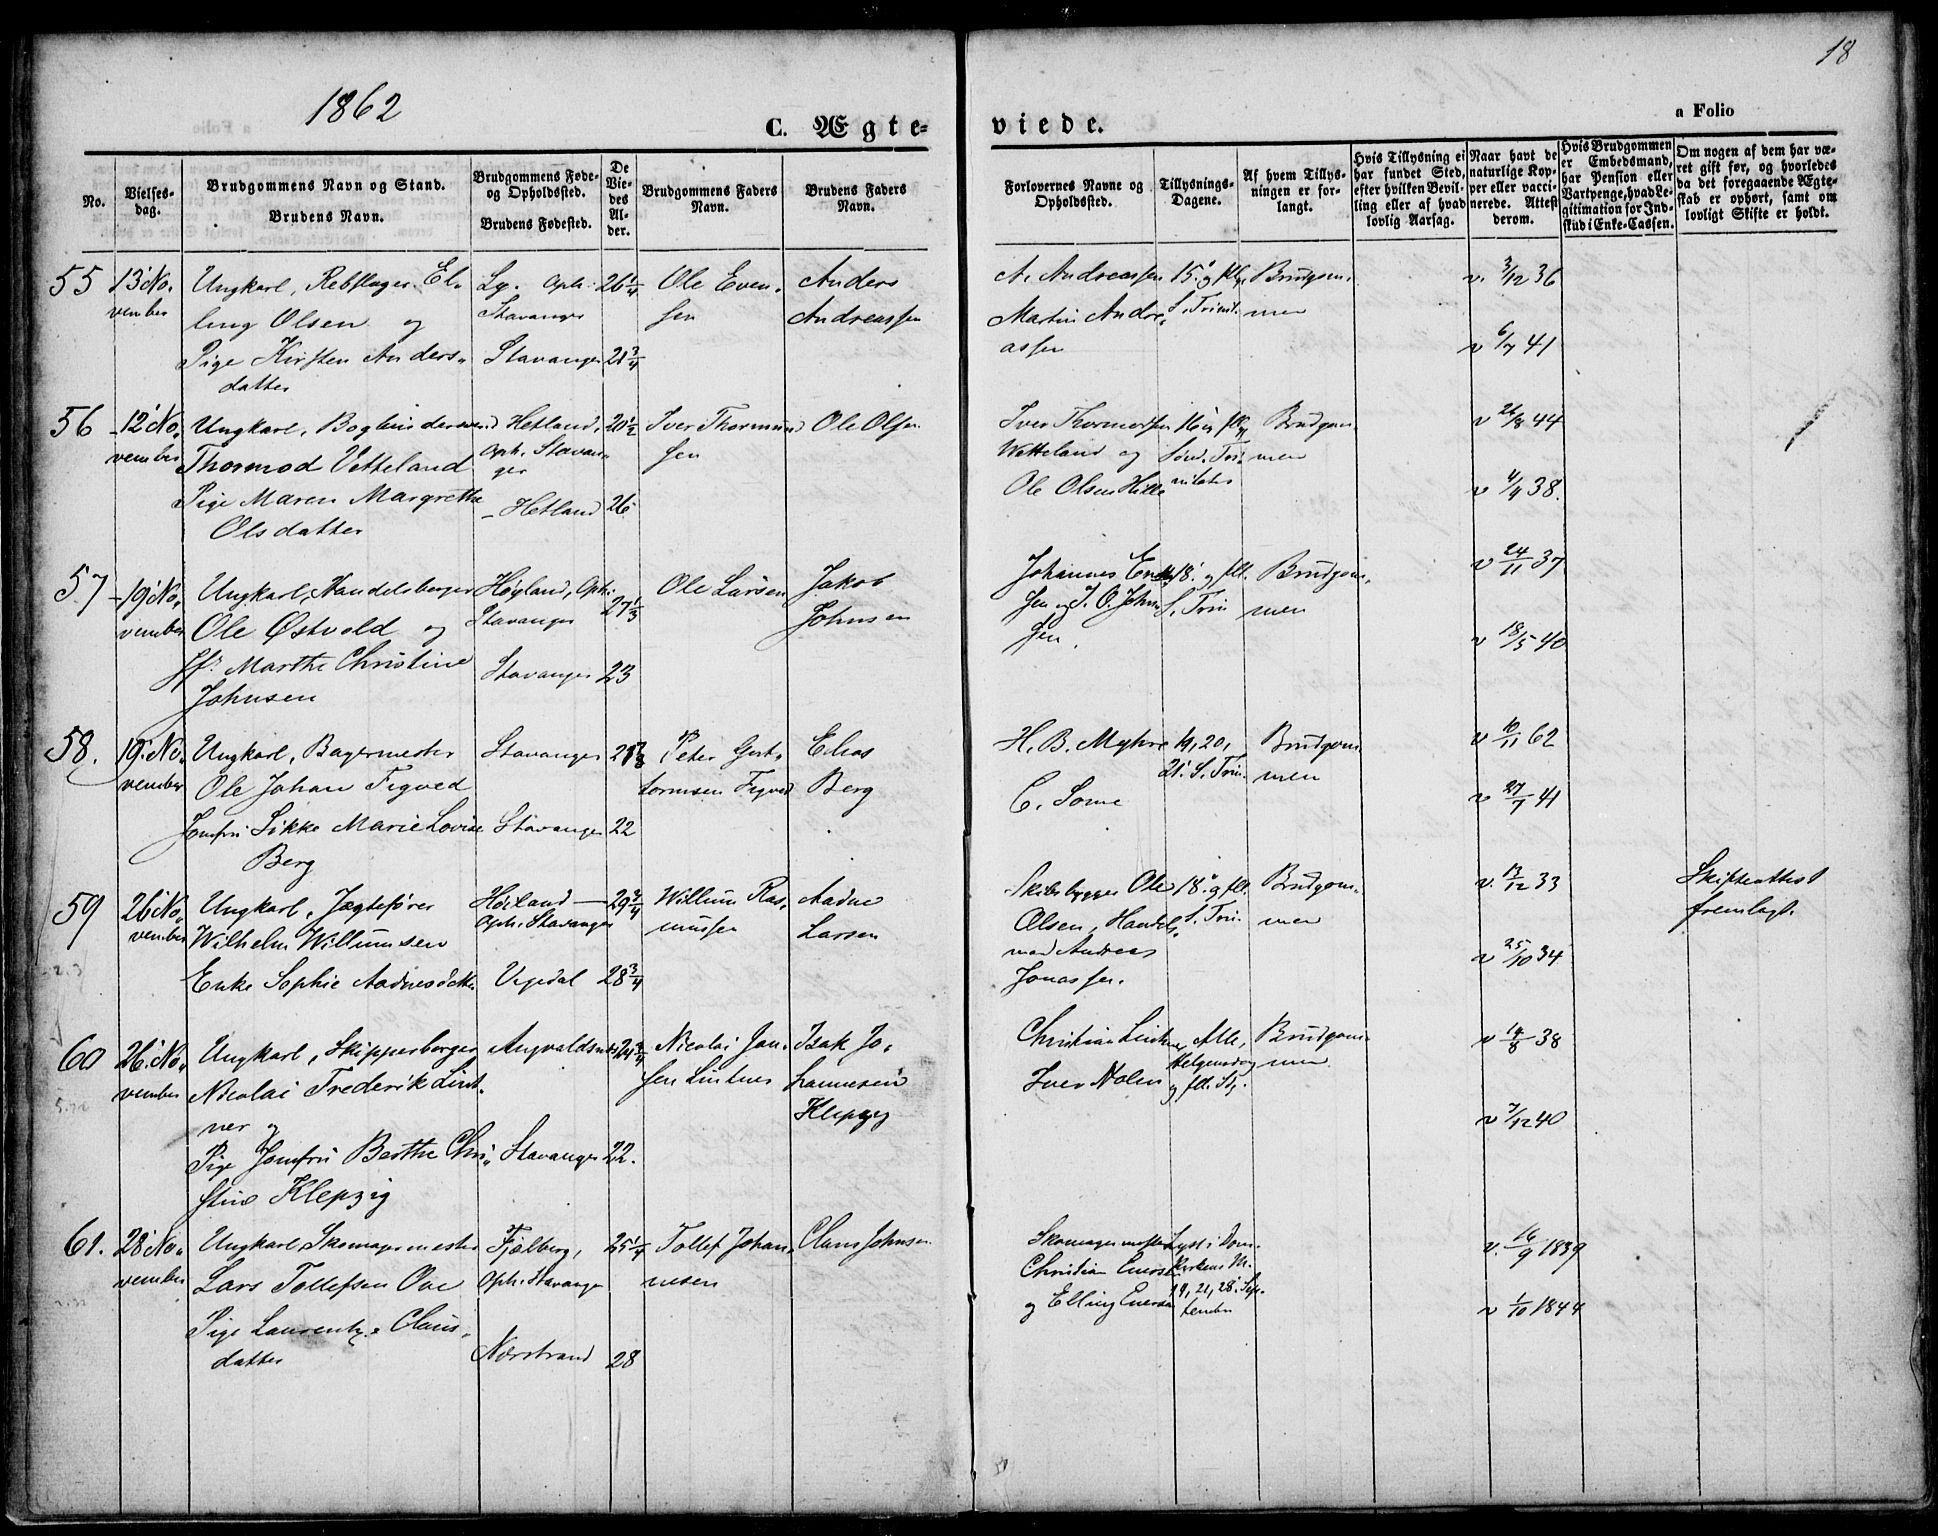 18
1862
a Folio
C. Ægte-
viede.
No.
Vielses-
dag.
Brudgommens Navn og Stand.
Brudens Navn.
Brudgommens Føde-
og Opholdssted.
Brudens Fødested.
De
Vie-
des
Al-
der.
Brudgommens Faders
Navn.
Brudens Faders
Navn.
Forlovernes Navne og
Opholdssted.
Tillysnings-
Dagene.
Af hvem Tillys-
ningen er for-
langt.
Hvis Tillysning ei
har fundet Sted,
efter hvilken Bevil-
ling eller af hvad
lovlig Aarsag.
Naar havt de
naturlige Kop-
per eller vacci-
nerede. Attest
derom.
Hvis Brudgommen
er Embedsmand,
har Pension eller
Vartpenge, hvad Le-
gitimation for Ind-
skud i Enke-Cassen.
Om nogen af dem har væ-
ret gift før, og hvorledes
da det foregaaende Ægte-
skab er ophørt, samt om
lovligt Skifte er holdt.
55
13 No-
vember
Ungkarl, Rebslager El-
ling Olsen og
Pige Kirsten Anders-
datter
Oph.
Stavanger
Stavanger
26 1/4
21 3/4
Ole Even-
sen
Anders
Andreassen
A. Andreassen
Martin Andre-
assen
15 og flg.
S. Trinit.
Brudgom-
men
v. 3/12 36
v 6/7 41
56
12 No-
vember
Ungkarl, Bogbindersvend
Thormod Vetteland
Pige Maren Margrethe
Olsdatter
Hetland,
Oph. Stavan-
ger
Hetland
20 1/2
26
Iver Thormund
sen
Ole Olsen
Iver Thormodsen
Wetteland og
Ole Olsen Hille
16 og flg
Sønd. Tri-
nitatis
Brudgom-
men
v 26/8 44
v 4/9 38.
57
19 No-
vember
Ungkarl, Handelsborger
Ole Østvold og
Jfr. Marthe Christine
Johnsen
Høyland, Oph.
Stavanger
Stavanger
27 1/3
23
Ole Larsen
Jakob
Johnsen
Johannes
sen og J. O. John-
sen.
18. og flg.
S. Trin
Brudgom-
men
v 24/11 37
v 18/5 40
58.
19 No-
vember
Ungkarl, Bagermester
Ole Johan Tegved
Jomfru Sikke Marie Lovise
Berg
Stavanger
Stavanger
22
Peter Gut-
tormsen Tegved
Elias
Berg
H. B. Myhre
C. Some
19, 20,
21. S. Trin.
Brudgom-
men
v 10/11 62
v 27/7 41
59
26 No-
vember
Ungkarl, Jægtefører
Wilhelm Willumsen
Enke Sophie Aadnesdatter
Høiland
Oph. Stavanger
Vigedal
29 3/4
28 3/4
Willum Ras-
mussen
Aadne
Larsen
Skibsbygger Ole
Olsen, Handels-
mand Andreas
Jonassen.
18. og flg.
S. Trin.
Brudgom-
men
v. 13/12 33
v 25/10 34
Skifteattest
fremlagt.
60
26 No-
vember
Ungkarl, Skipperborger
Nicolai Frederik Lint-
ner og
Pige Jomfru Berthe Chri-
stine Klepzig
Augvaldsnes
Stavanger
24 3/4
22.
Nicolai Jan-
sen Lintner
Isak Jo-
hannesen
Klepzig
Christian Lintner
Iver Nolen
Alle
Helgensdag
og flg. S.
Brudgom-
men
v 14/8 38
v 7/12 40
61.
28 No-
vember
Ungkarl Skomagermester
Lars Tollefsen Ove
Pige Laurentze Claus-
datter
Fjelberg,
Oph. Stavanger
Nerstrand
25 1/4
28
Tollef Johan-
nesen
Claus Johnsen
Skomagermester
Christian Enersen
og Elling Enersen
Lyst i Dom-
kirken M.
14, 21, 28. Sep-
tember
v. 16/9 1839
v 1/10 1844